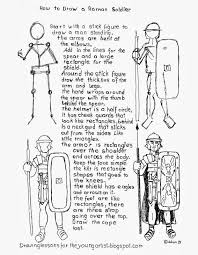 How to Draw a Roman Soldier
Start with a stick figure to
draw a man standing.
The arms are bent at
the elbows.
Add in the lines for the
spear and a large
rectangle for the
shield.
Around the stick figure
draw the thickness of
the arms and the
The hand wraps around
the spear with the thumb
behind the spear.
The helmet is a half circle.
It has cheek guards that
look like rectangles. Behind
is a neckguard that sticks
out from the sides like
little triangles.
The armor is rectangles
over the shoulder
and across the body.
Keep the face simple
the kilt is rectangle
shapes that goes to
the knees.
The shield has eagles
and arrows on it.
The feet are like
rectangles, there
are three strap
going over the
top. Draw the cape
last.
Drawinglessonsfortheyoungartist.blogspot.com